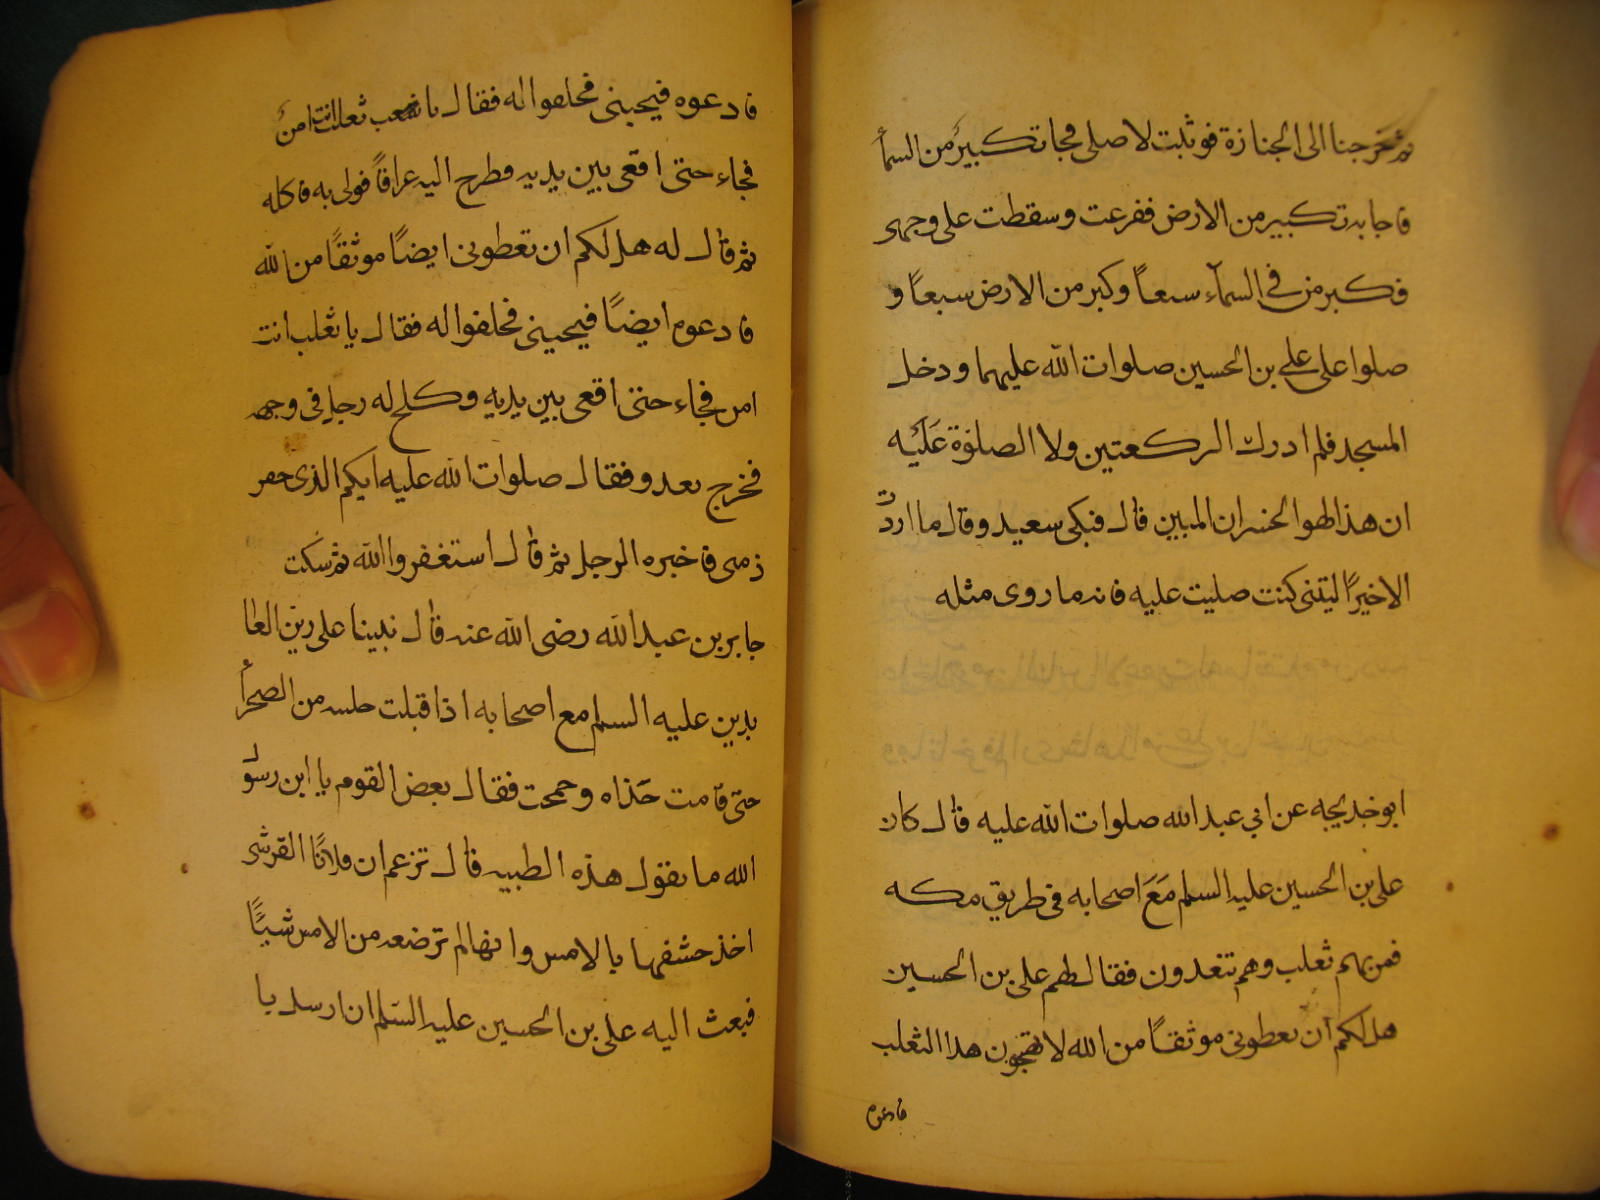 ثم خرجنا الى الجنازة فوثبت لاصلى فجا تكبير من السمآ
فاجابه تكبير من الارض ففزعت وسقطت على وجهى
فكبر من فى السمآء سبعاً وكبر من الارض سبعاً و
صلوا على على بن الحسين صلوات الله عليهما ودخل
المسجد فلم ادرك الركعتين ولا الصلوة عَلَيْه
ان هذا لهو الخسران المبين قال فبكى سعيد وقال ما اردتُ
الا خيرًا ليتنى كنت صليت عليه فانه ما روى مثله
ابو خديجه عن ابي عبد الله صلوات الله عليه قال كان
على بن الحسين عليه السلم مَعَ اصحابه فى طريق مكه
فمر بهم ثعلب وهم يتغدون فقال لهم على بن الحسين
هل لكم ان تعطونى موثقاً من الله لا تهيجون هذا الثعلب
فادعوه
فادعوه فيجبنى فحلفوا له فقال يا ثعلب انت امنٌ
فجاء حتى اقعى بين يديه فطرح اليه عراقاً فولى به فاكله
ثم قال له هل لكم ان تعطونى ايضاً موثقاً من الله
فادعوه ايضاً فيجبنى فحلفوا له فقال يا ثعلب انت
امن فجاء حتى اقعى بين يديه وكلح له رجل فى وجهه
فخرج يعدو فقال صلوات الله عليه ايكم الذى خفر
ذمتى فاخبره الرجل ثم قال استغفروا الله ثم سَكت
جابر بن عبد الله رضى الله عنه قال نبينا على زين العا
بدين عليه السلم مع اصحابه اذا قبلت من الصحرآ
حتى قامت حَذاه وحمحمت فقال بعض القوم يا ابن رسول
الله ما تقول هذه الظبيه قال تزعم ان فلانًا القرشى
اخذ خشفها بالامس وانها لم ترضعه من الامس شيئًا
فبعث اليه على بن الحسين عليه السَلم ان ارسل يا